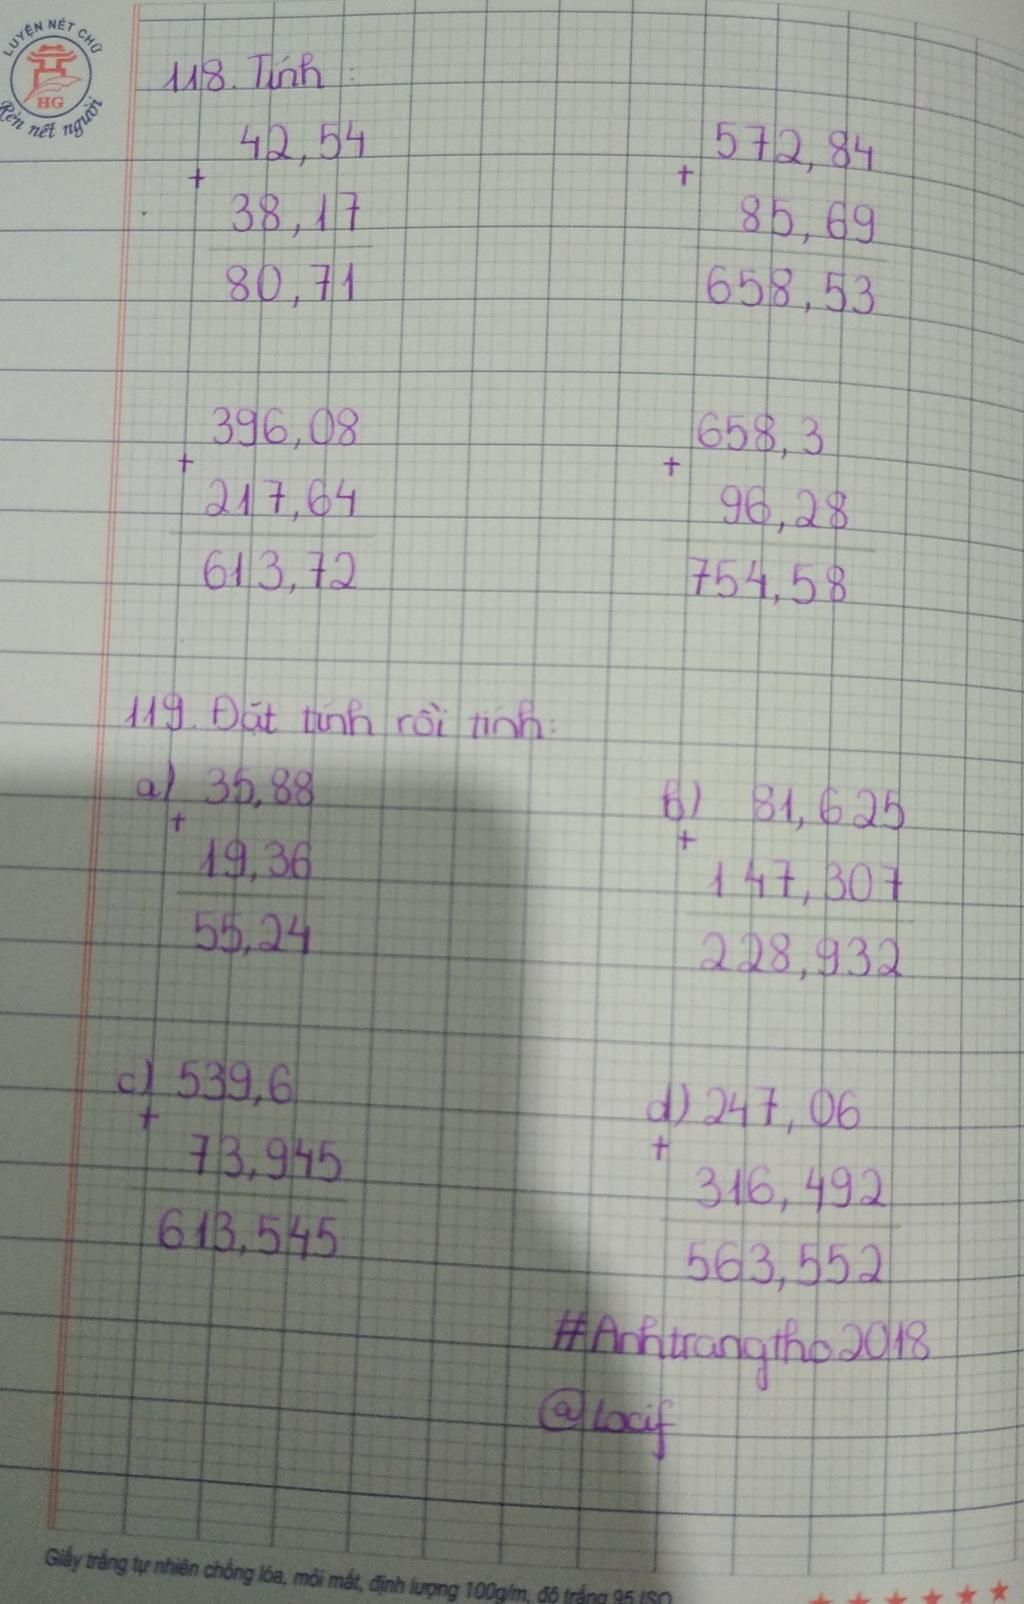 LUYỆN NÉT CHỮ
HG
Rèn nết người
118. Tính:
42,54
+
38,17
80,71
572,84
+
85,69
658,53
396,08
+
217,64
613,72
658,3
+
96,28
754,58
119. Đặt tính rồi tính:
a) 35,88
+
19,36
55,24
b) 81,625
+
147,307
228,932
c) 539,6
+
73,945
613,545
d) 247,06
+
316,492
563,552
#Anhtrangtho2018
@Locif
Giấy trắng tự nhiên chống lóa, mỏi mắt, định lượng 100g/m, độ trắng 95 ISO